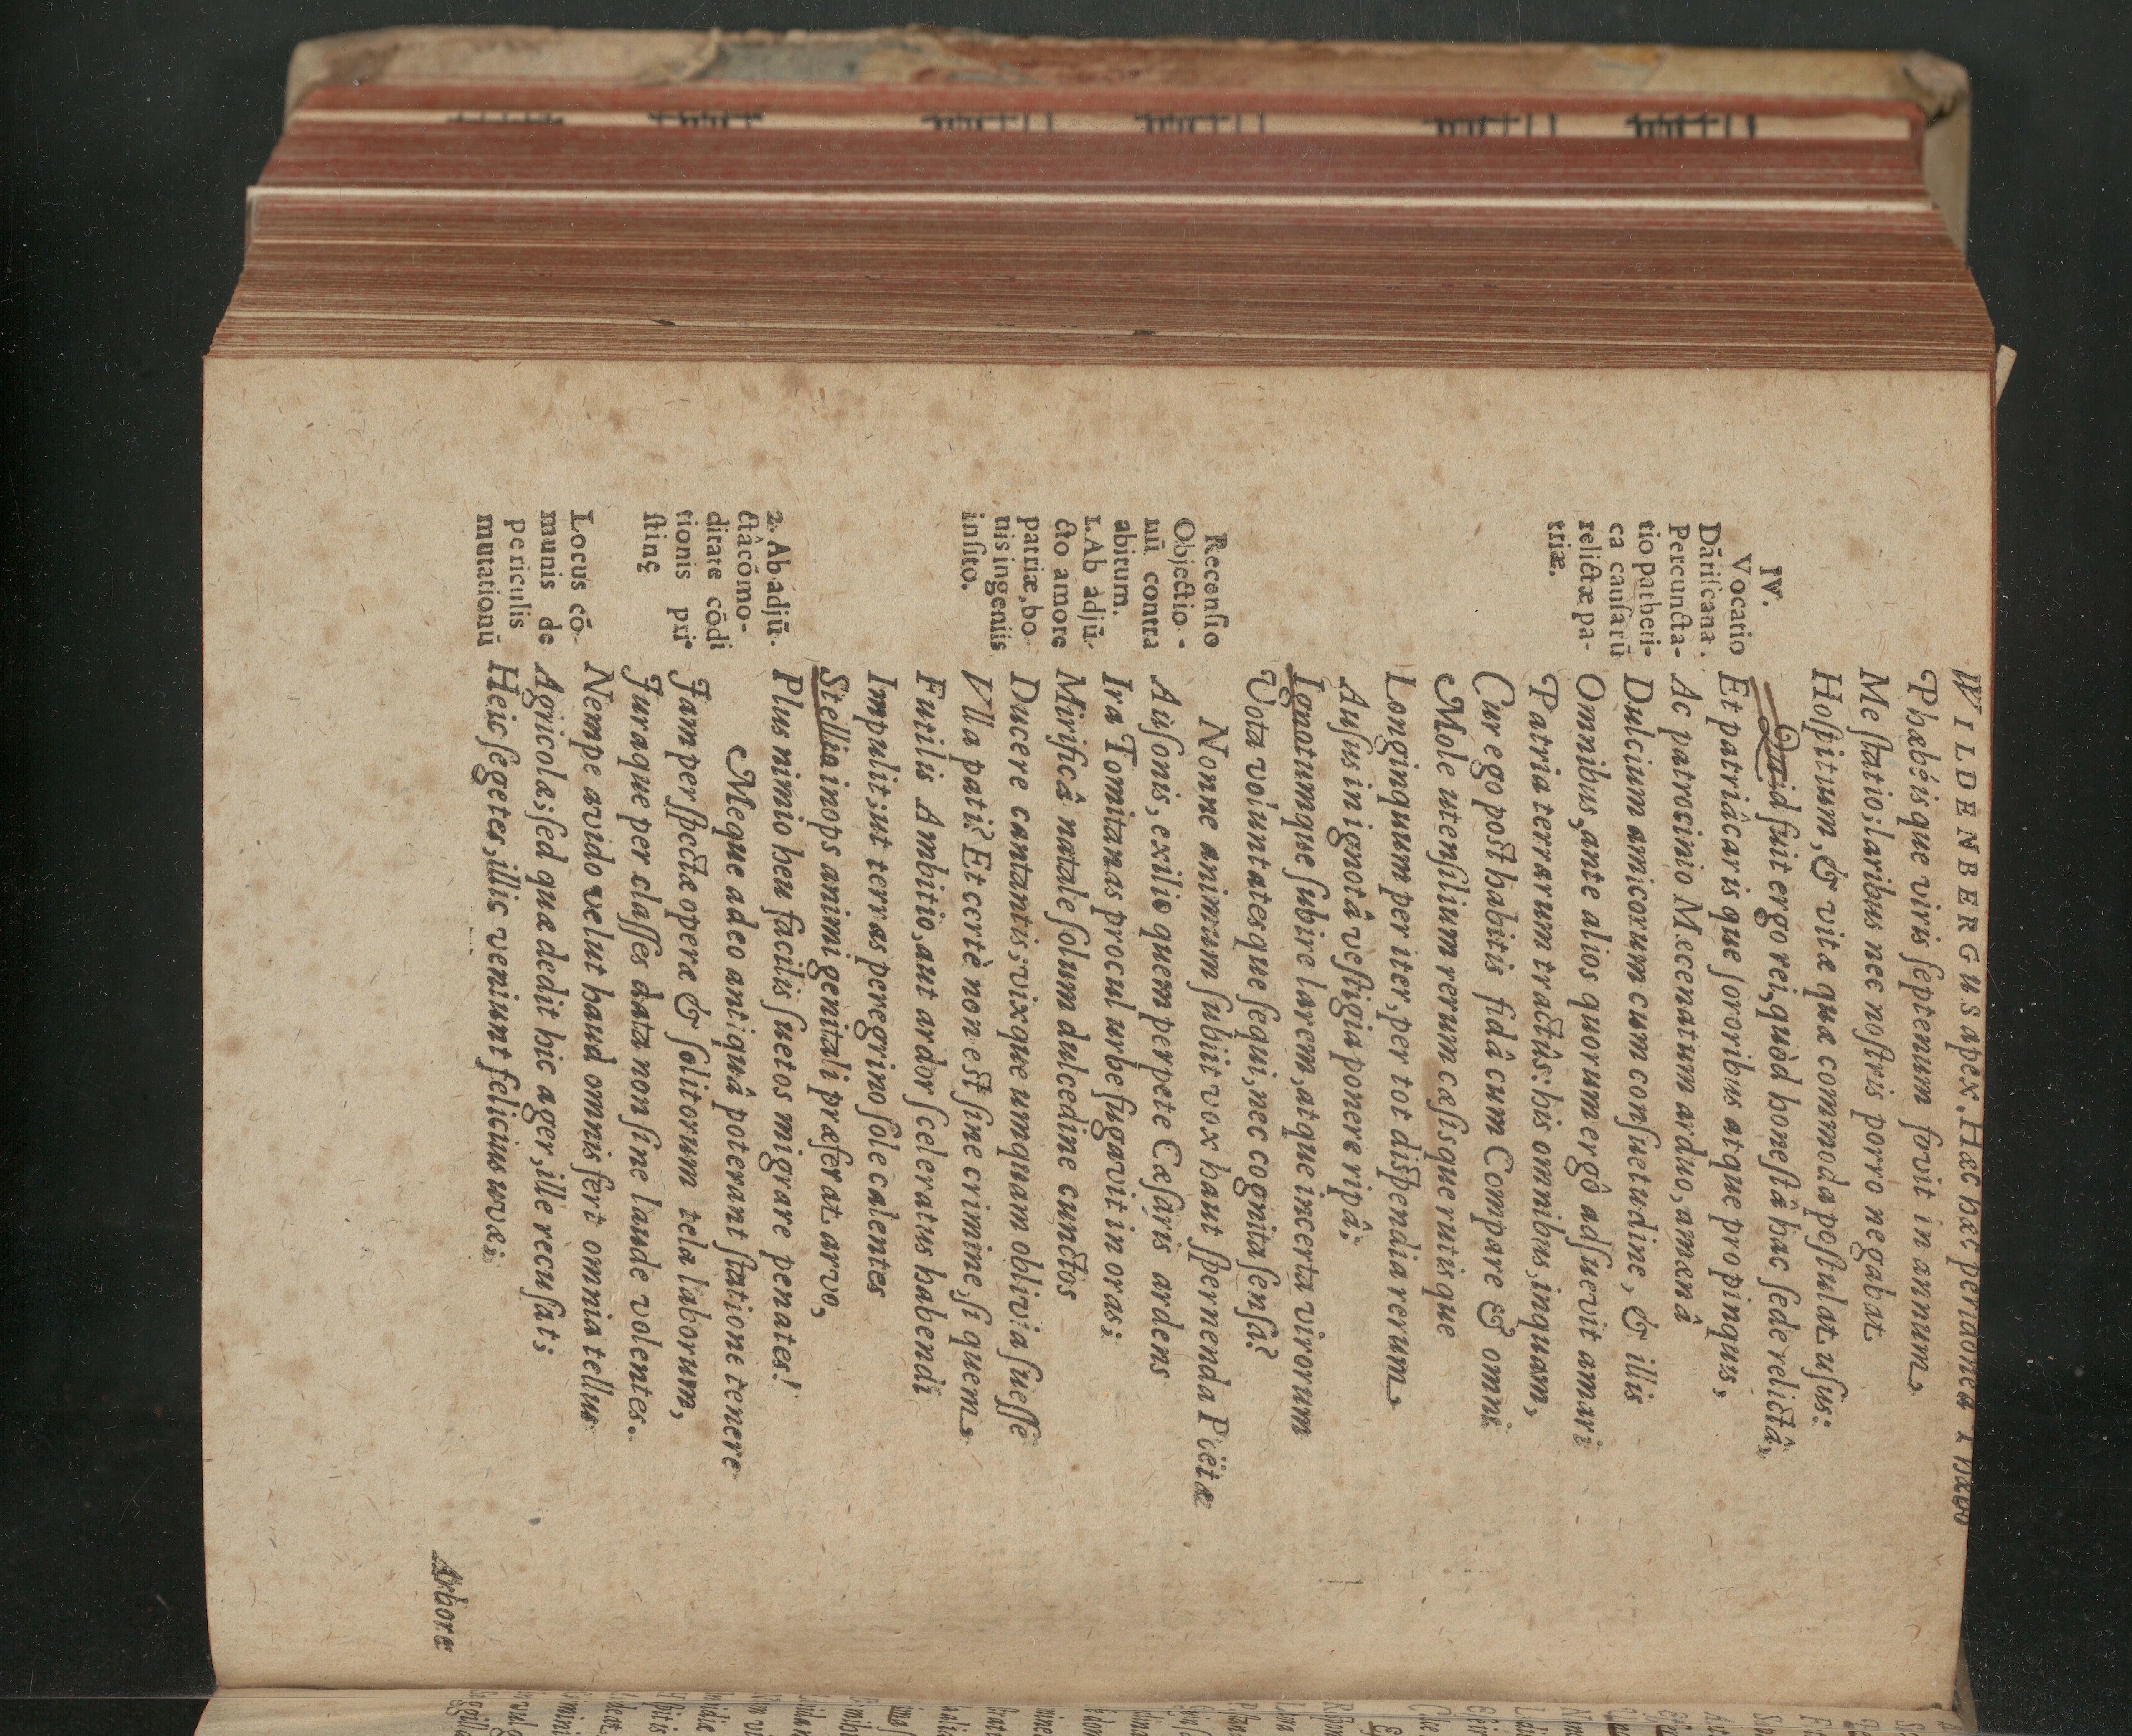 WILDENBERGUS apex. Hæc hæc
Phœbéisque viris septenum forvit in annum,
Me statio; laribus nec nostris porro negabat
Hospitium, & vitæ quæ commoda postulat usus:
IV.
Vocatio
Dātiscana.
Percuncta-
tio patheti-
ca causarū
relictæ pa-
triæ.
Quid fuit ergo rei, quòd honestâ hac sede relictâ,
Et patriâ carisque sororibus atque propinquis,
Ac patrocinio Mecenatum arduo, amœnâ
Dulcium amicorum cum consuetudine, & illis
Omnibus, ante alios quorum ergô adsuevit amari
Patria terrarum tractûs: his omnibus, inquam,
Cur ego posthabitis fidâ cum Compare & omni
Mole utensilium rerum cæsisque rutisque
Longinquum per iter, per tot dispendia rerum,
Ausus in ignotâ vestigia ponere ripâ;
Ignotumque subire larem, atque incerta virorum
Vota voluntatesque sequi, nec cognita sensa?
Recensio
Objectio-
nū contra
abitum.
1. Ab adjū-
cto amore
patriæ, bo
nis ingeniis
insito.
Nonne animum subiit vox haut spernenda Poëtæ
Ausonis, exilio quem perpete Cæsaris ardens
Ira Tomitanas procul urbe fugavit in oras;
Mirificâ natale solum dulcedine cunctos
Ducere cantantis; vixque umquam oblivia suesse
Vlla pati? Et certè non est sine crimine, si quem
Futilis Ambitio, aut ardor sceleratus habendi
Impulit; ut terras peregrino sole calentes
Stellio inops animi genitali præferat arvo,
Plus nimio heu facilis suetos migrare penates!
2. Ab adjū-
ctâ cōmo-
ditate cōdi
tionis pri-
stinę
Meque adeo antiquâ poterant statione tenere
Jam perspectæ operæ & solitorum tela laborum,
Juraque per classes data non sine laude volentes.
Nempe avido velut haud omnis fert omnia tellus
Locus cō-
munis de
periculis
mutationū
Agricolæ; sed quæ dedit hic ager, ille recusat;
Heic segetes, illic veniunt felicius uvæ;
Arboræ